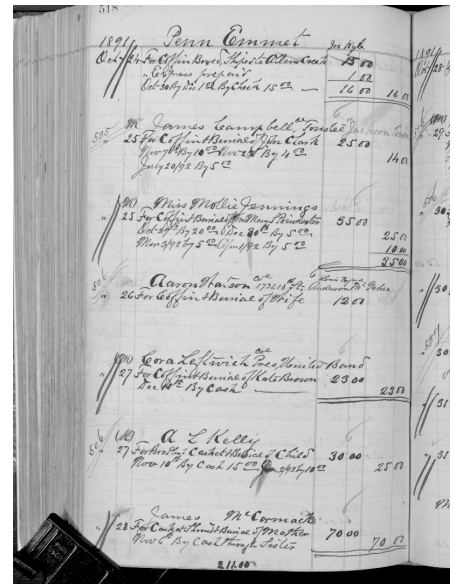 518
1891 Penn Emmet Jos Kyle
Oct 24 For Coffin Boxed, Shipd to Allens Creek 15 00
" Express prepaid 1 00
Oct 30 By Dis 1 00 By Check 15 00 — 16 00 16 00
505 (M) James Campbell, Trustee Jackson
" 25 For Coffin & Burial of John Clark 25 00
Nov 7th By 10 00 Nov By 4 00 14 00
July 20/92 By 5 00
(M) Miss Mollie Jennings
" 25 For Coffin & Burial of Mrs Mary 35 00
Oct By 20 00 Dec 30th By 5 00 25 00
Mch 3/92 By 5 00 Apr 1/92 By 5 00 10 00
35 00
506 Aaron Watson Col 10th St,
" 26 For Coffin & Burial of Wife 12 00
(M) Cora Leftwich Col Pres, United Band
" 27 For Coffin & Burial of Kate Brown 23 00
Dec By Cash — 23 00
506 (M) A L Kelly
" 27 For Casket & Burial of Child 30 00
Nov 10th By Cash 15 00 2/92 By 10 00 25 00
James McCormack
" 28 For Casket Shroud & Burial of Mother 70 00
Nov 6th By Cash through Sister 70 00
211.00